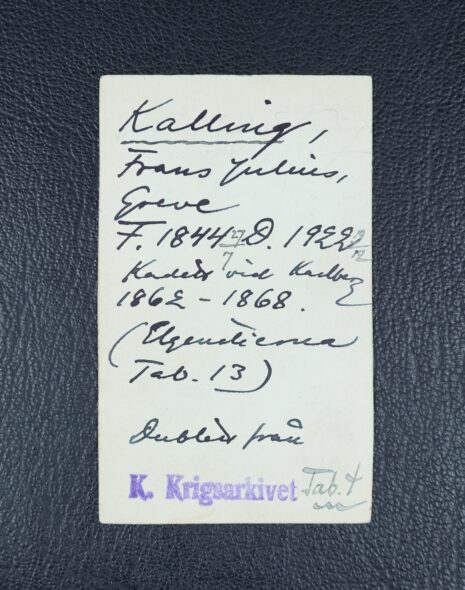 Kalling,
Frans Julius,
Greve
F. 1844 27/7 D. 1922 12/12
Kadett vid Karlberg
1862 - 1868.
(Elgenstierna
Tab. 13)
Dublett från
K. Krigsarkivet Tab. 4